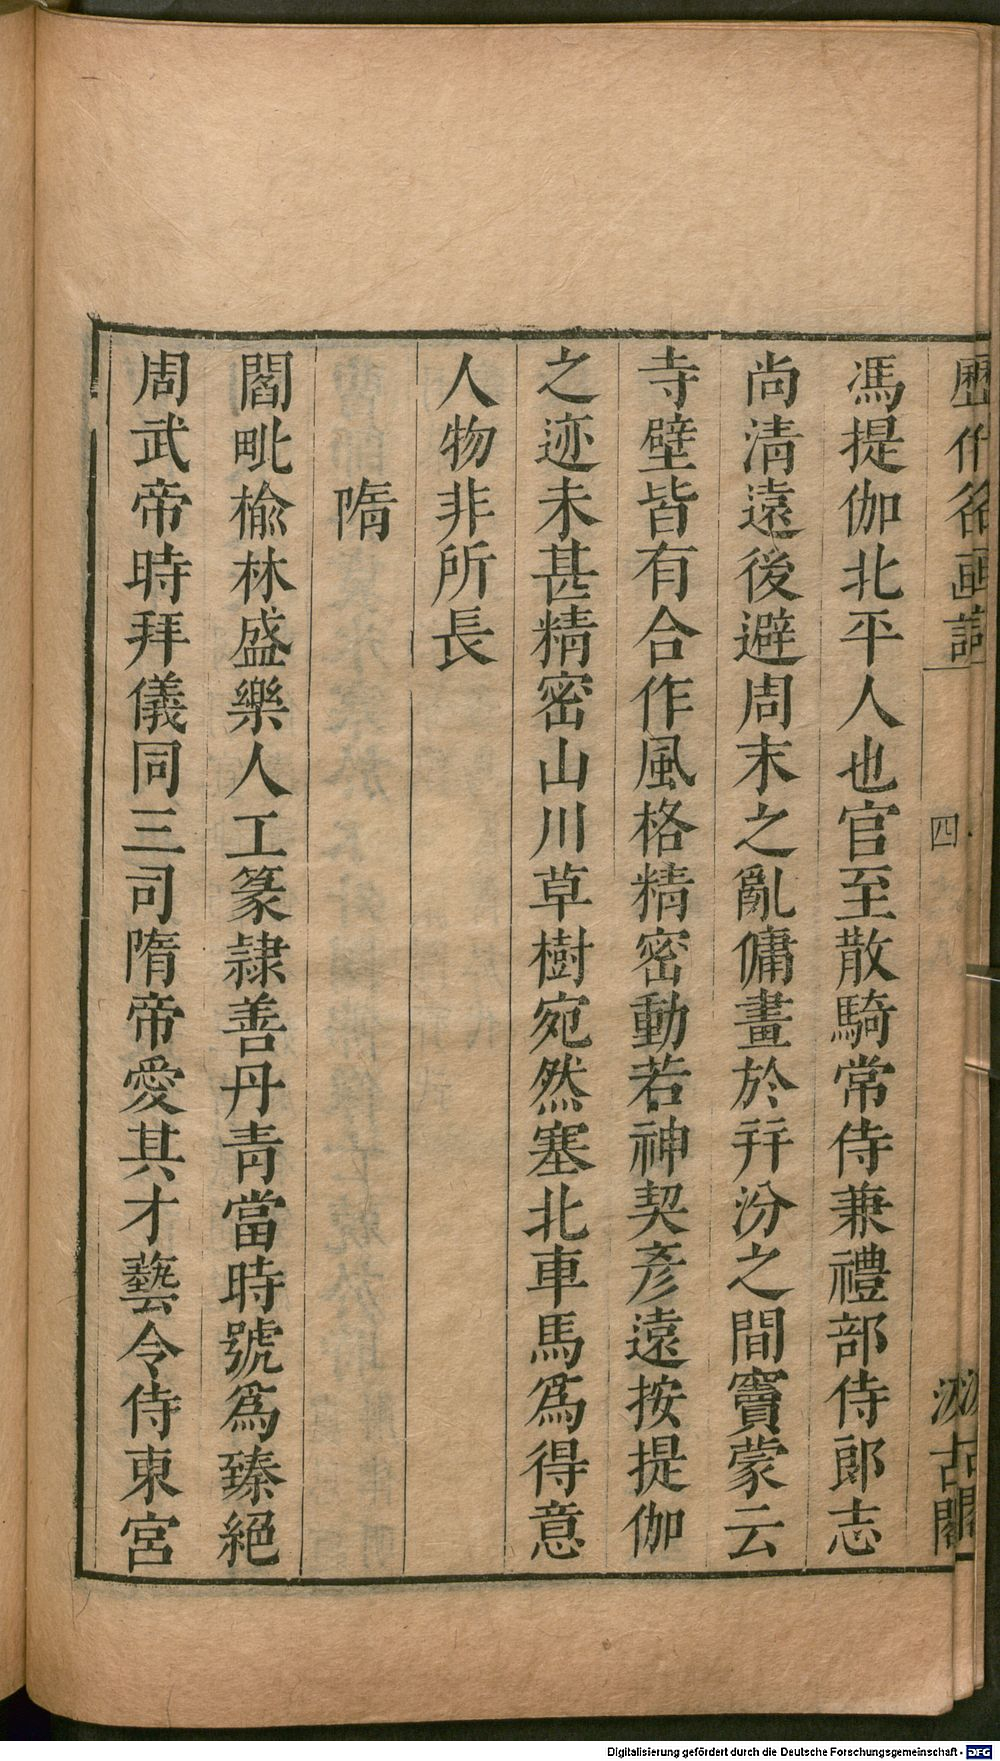 歷代名画記
四
汲古閣
馮提伽北平人也官至散騎常侍兼禮部侍郎志
尚清遠後避周末之亂傭畫於幷汾之間竇蒙云
寺壁皆有合作風格精密動若神契彥遠按提伽
之迹未甚精密山川草樹宛然塞北車馬爲得意
人物非所長
隋
閻毗榆林盛樂人工篆隷善丹青當時號爲臻絕
周武帝時拜儀同三司隋帝愛其才藝令侍東宮
Digitalisierung gefördert durch die Deutsche Forschungsgemeinschaft - DFG